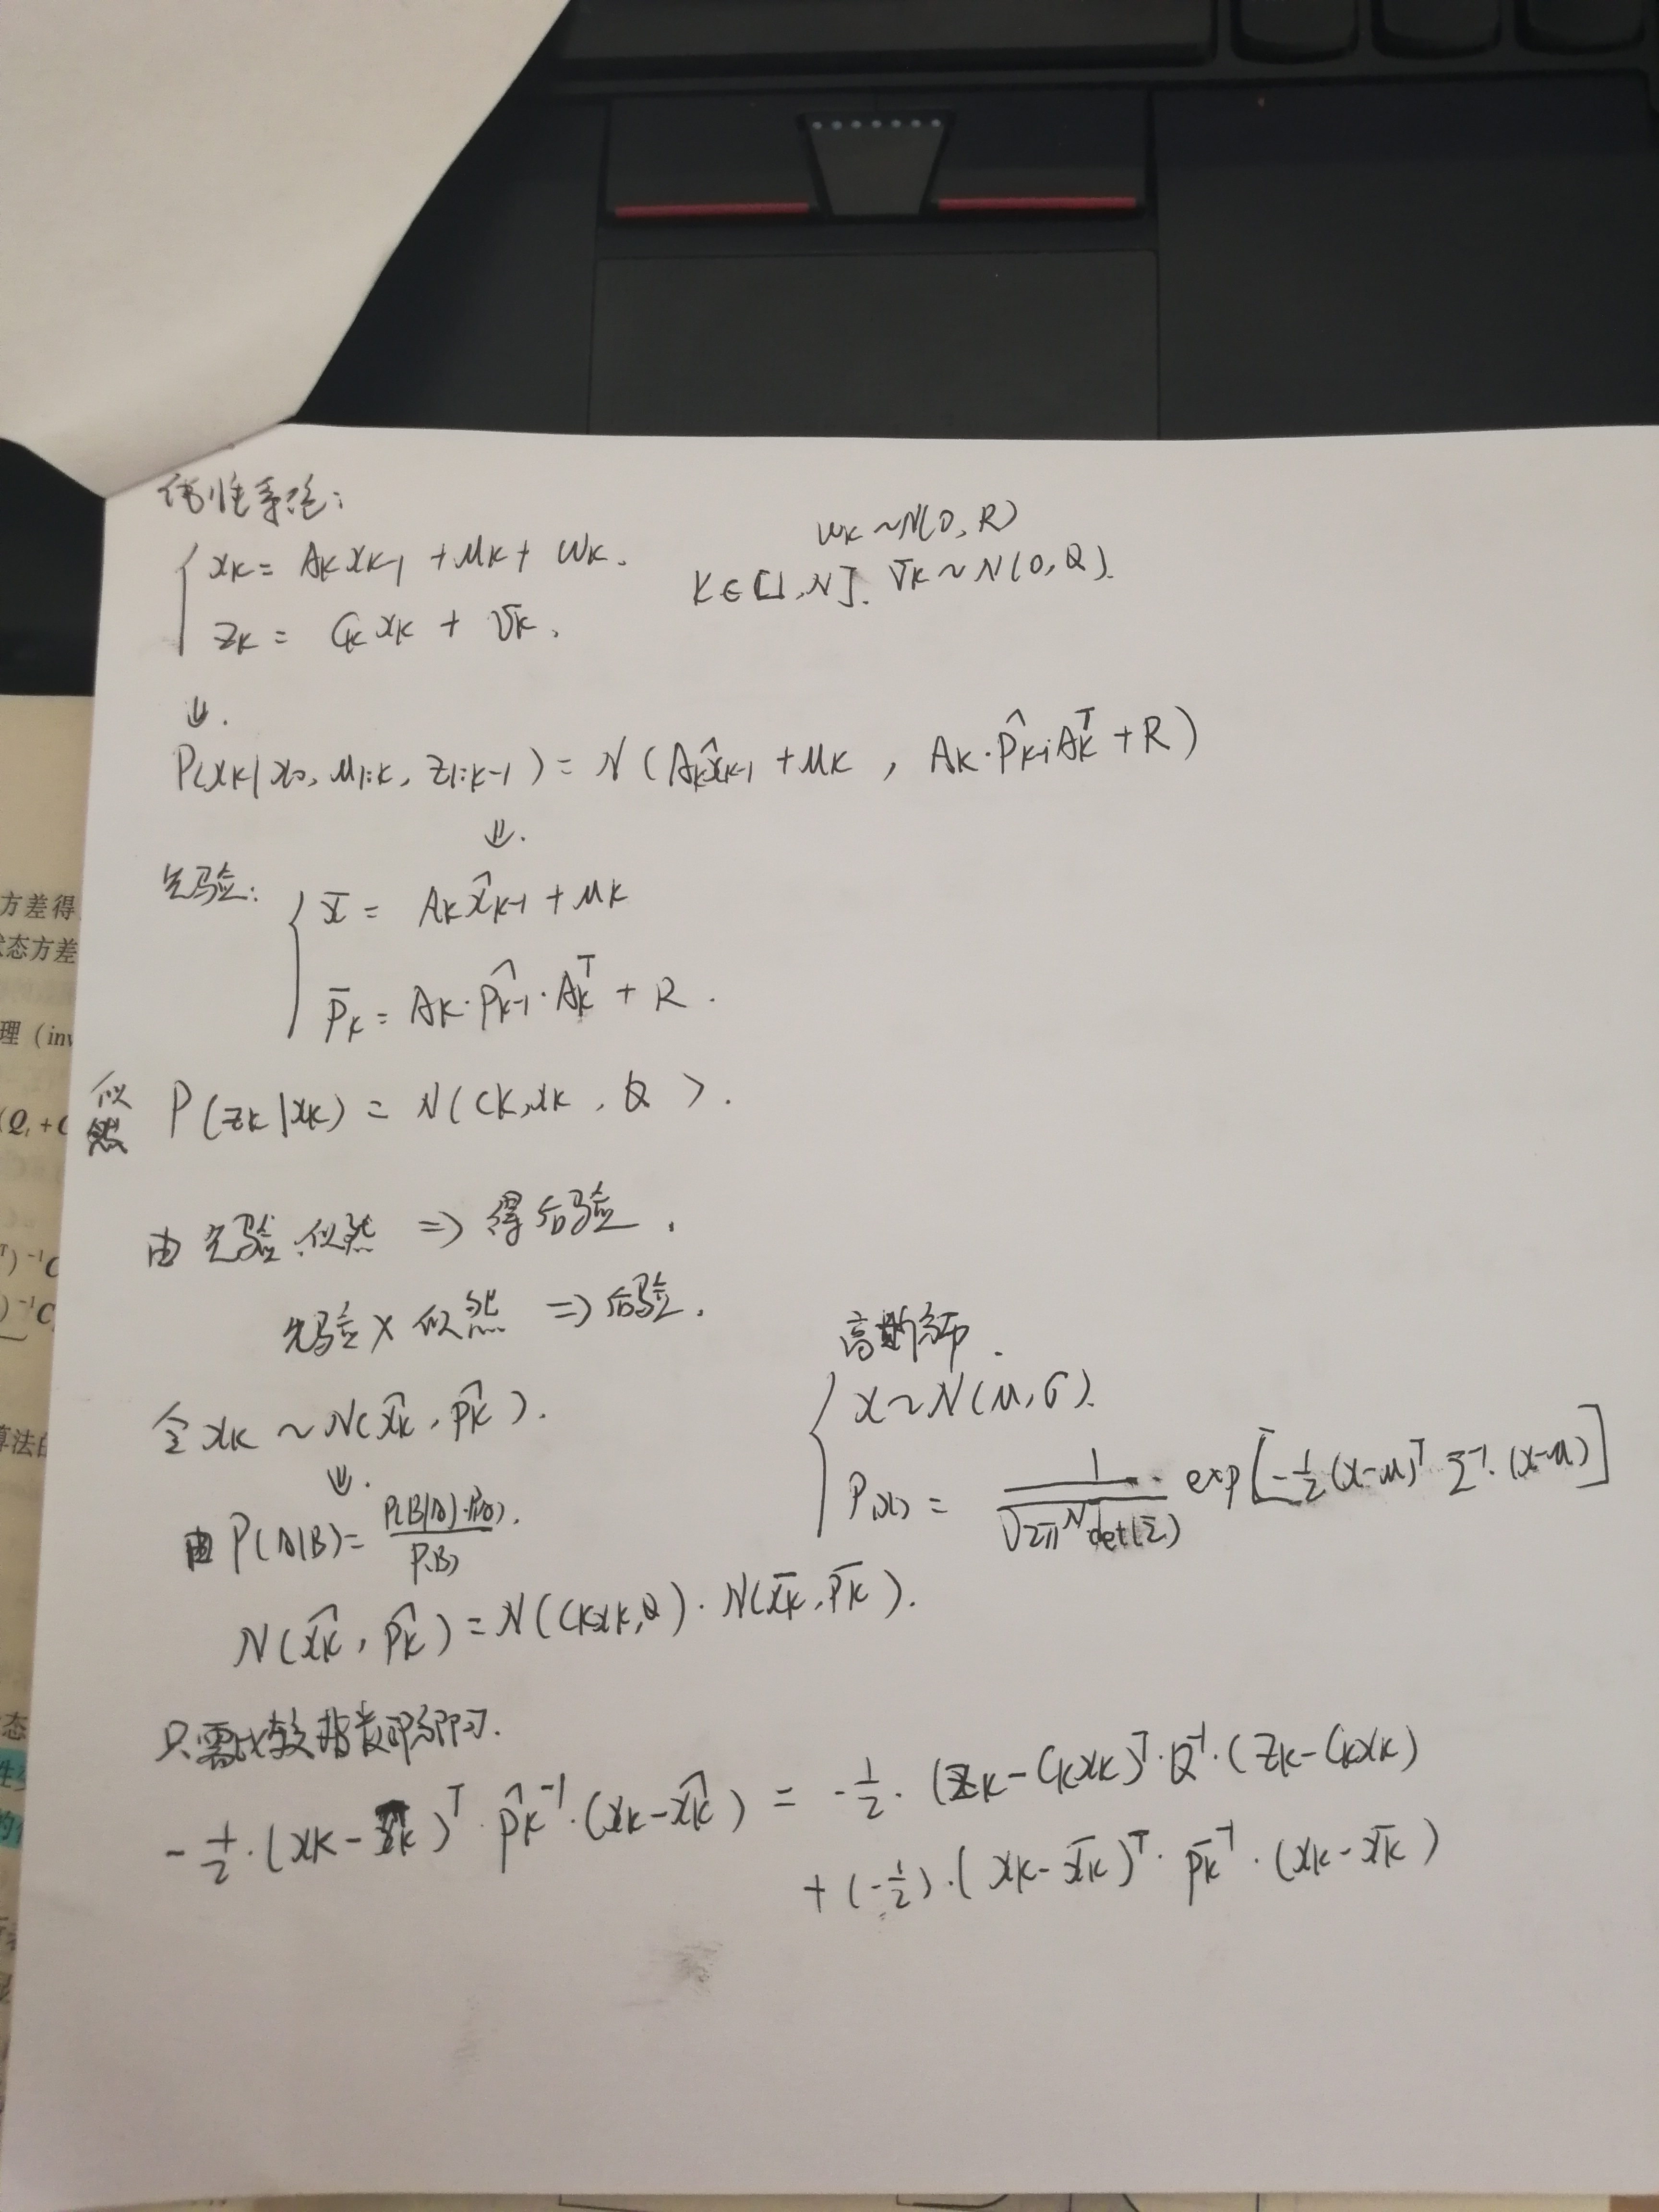 线性系统:
x_K = A_K x_{K-1} + u_K + w_K. w_K ~ N(0, R)
z_K = C_K x_K + v_K, K∈[1,N]. v_K ~ N(0, Q).
⇓.
P(x_K | x_0, u_{1:K}, z_{1:K-1}) = N(A_K x̂_{K-1} + u_K, A_K·P̂_{K-1}A_K^T + R)
⇓.
先验: x̄ = A_K x̂_{K-1} + u_K
P̄_K = A_K·P̂_{K-1}·A_K^T + R.
似然 P(z_K | x_K) = N(C_K x_K, Q).
由先验.似然 ⇒ 得后验.
先验 × 似然 ⇒ 后验.
令 x_K ~ N(x̂_K, P̂_K).
⇓.
由 P(A|B) = P(B|A)·P(A) / P(B).
高斯分布.
x ~ N(u, σ).
P(x) = 1 / √(2π^N det(Σ)) exp[-1/2 (x-u)^T Σ^{-1}·(x-u)]
N(x̂_K, P̂_K) = N(C_K x_K, Q)·N(x̄_K, P̄_K).
只需比较指数部分即可.
-1/2·(x_K - x̂_K)^T·P̂_K^{-1}·(x_K - x̂_K) = -1/2·(z_K - C_K x_K)^T·Q^{-1}·(z_K - C_K x_K)
+(-1/2)·(x_K - x̄_K)^T·P̄_K^{-1}·(x_K - x̄_K)
方差得
状态方差
理 (inv
(Q_t + C
T)^{-1}C
)^{-1}C
算法白
态